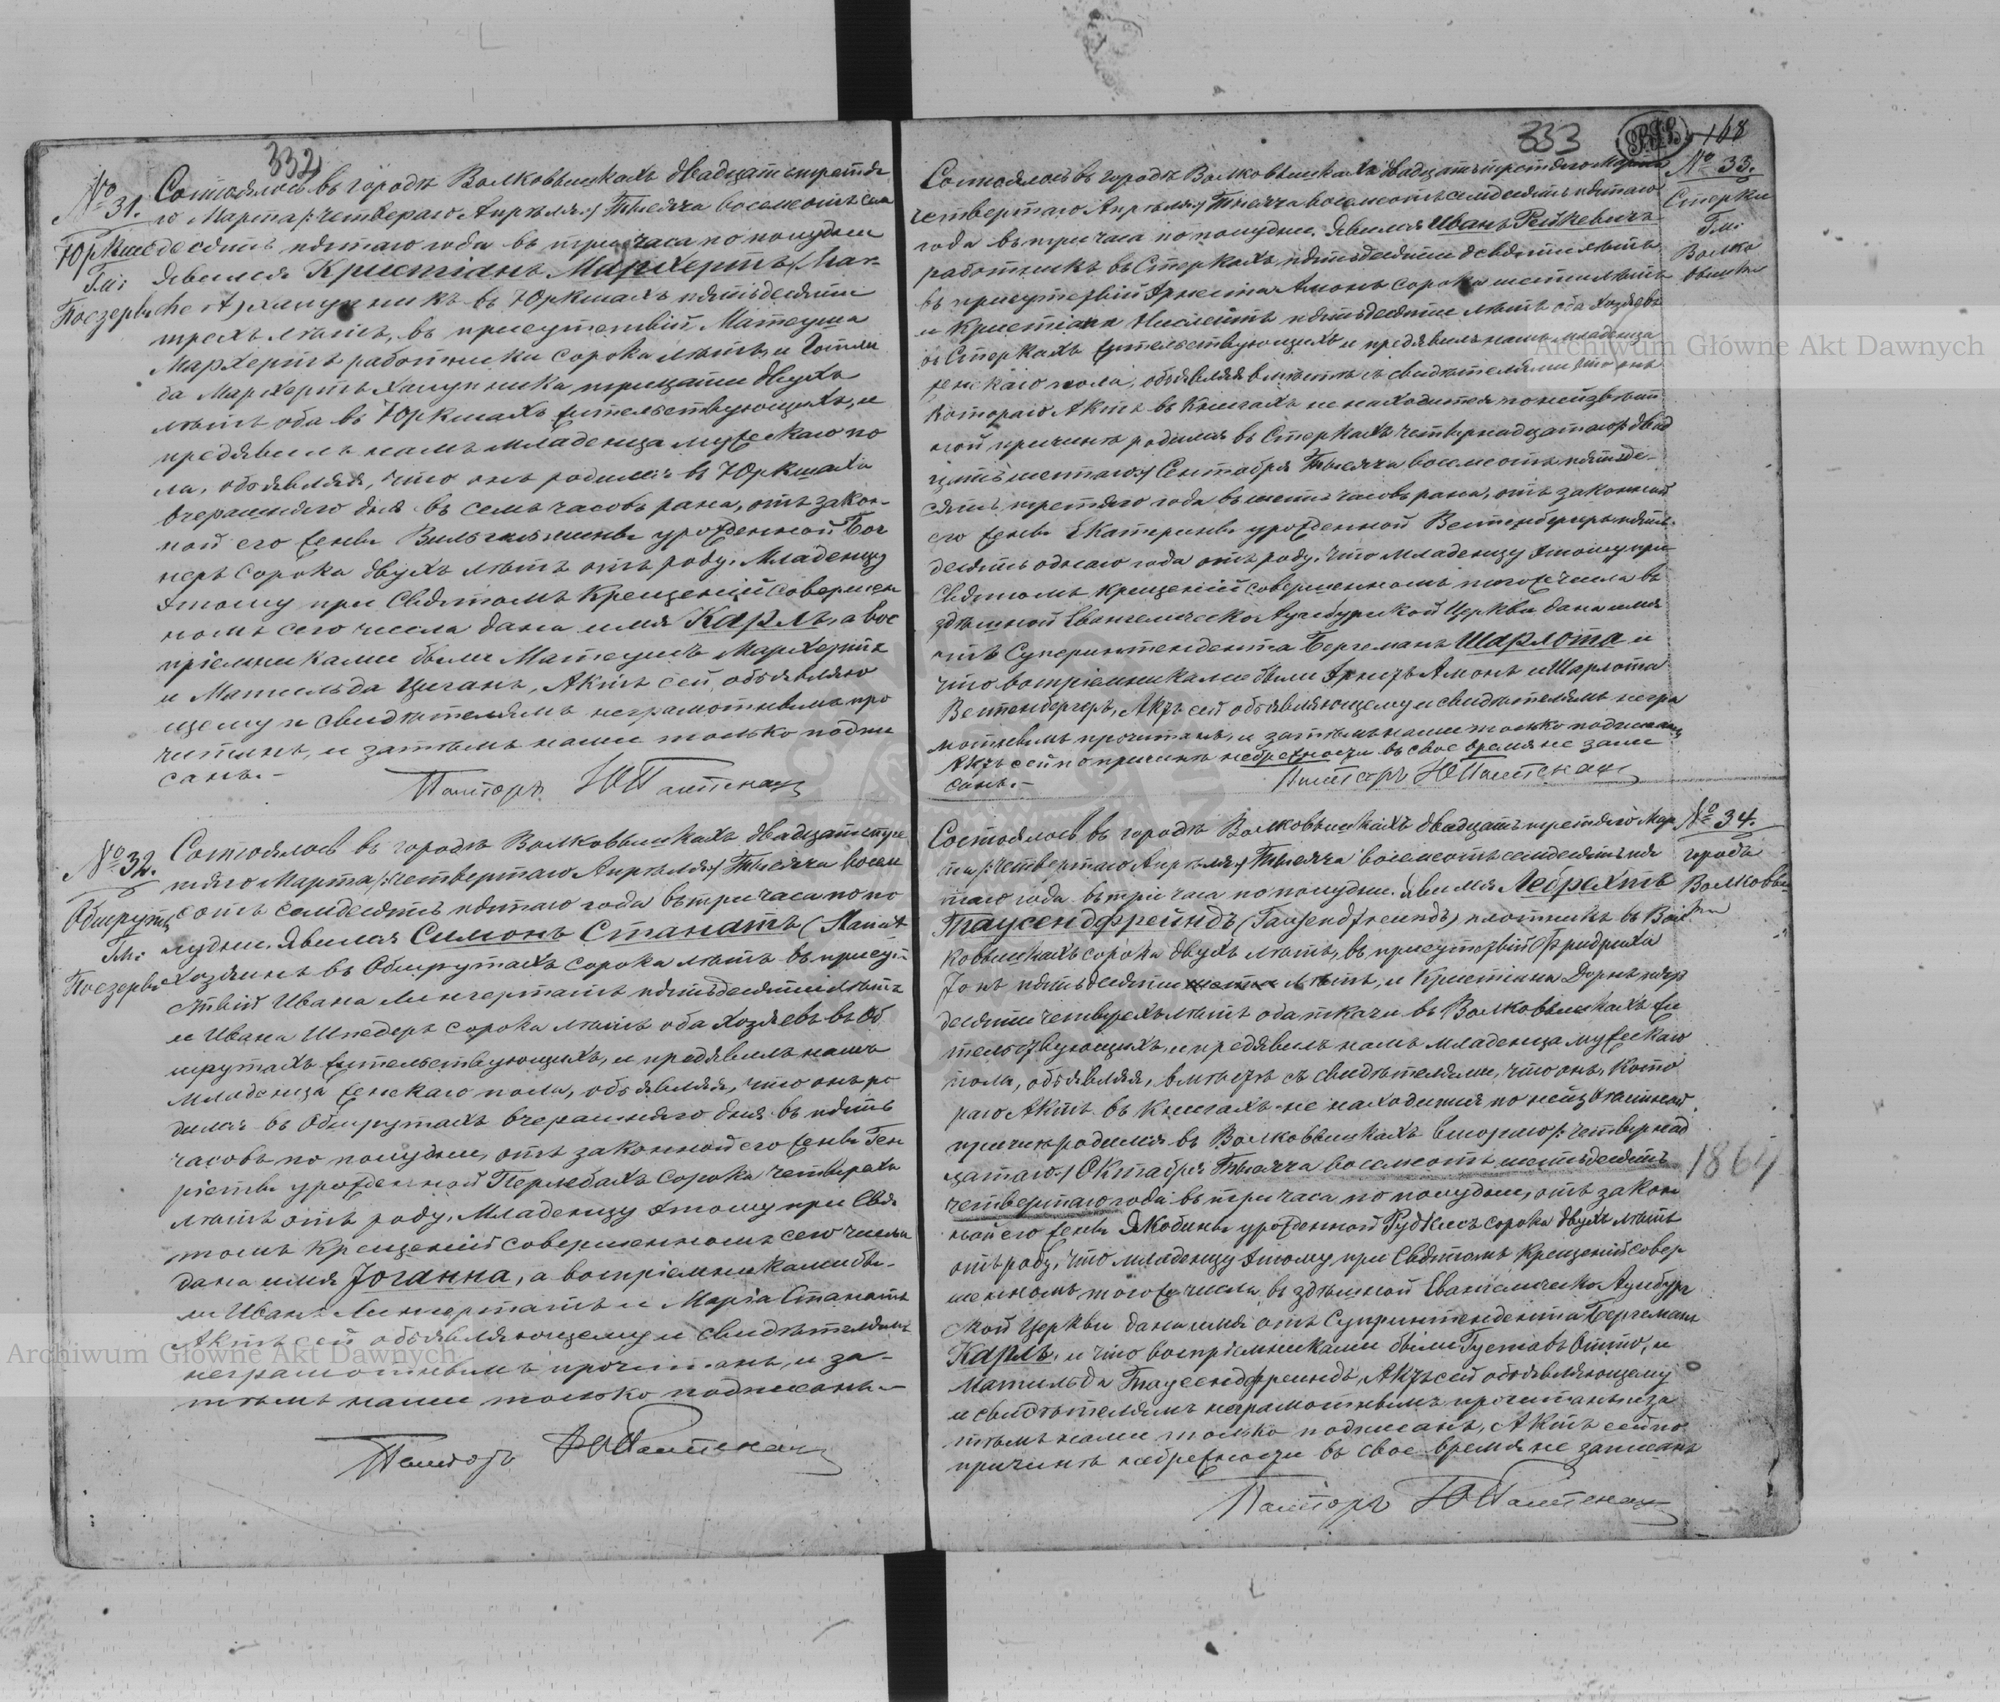 332
№ 31.
Юркше
Гми:
Поезеры
Состоялось въ городѣ Волковышкахъ двадцать третья
го Марта /: четвераго Апрѣля :/ Тысяча восемсотъ сем
десятъ пятаго года въ три часа по полудни
явился Кристіанъ Мархертъ (Mar-
chert) халупникъ въ Юркшахъ пятьдесяти
трехъ лѣтъ, въ присутствіи Матеуша
Мархертъ работника сорока лѣтъ, и Готли
ба Мархертъ халупника, тридцати двухъ
лѣтъ оба въ Юркшахъ жительствующихъ, и
предявилъ намъ младенца мужескаго по
ла, объявляя, что онъ родился въ Юркшахъ
вчерашняго дня въ семь часовъ рана, отъ закон-
ной его жены Вильгельмины урожденной Бог
неръ сорока двухъ лѣтъ отъ роду. Младенцу
этому при Святомъ Крещеніи совершен
номъ сего числа дана имя Карлъ, а вос
пріемниками были Матеушъ Мархертъ
и Матильда Циганъ, Актъ сей объявляю
щему и свидѣтелямъ неграмотнымъ про
читанъ, и затѣмъ нами только подпи
санъ.-
Пасторъ
№ 32.
Обшруты
Гм:
Поезеры
Состоялось въ городѣ Волковышкахъ двадцать тре
тяго Марта /: четвертаго Апрѣля :/ Тысяча восем
сотъ семдесятъ пятаго года въ три часа по по
лудни. Явился Симонъ Станатъ (Stanat
хозяинъ въ Обшрутахъ сорока лѣтъ въ присут
ствіи Ивана Лингертатъ пятьдесяти лѣтъ
и Ивана Шнедеръ сорока лѣтъ оба хозяевъ въ Об
шрутахъ жительствующихъ, и предявилъ намъ
младенца женскаго пола, объявляя, что онъ ро
дился въ Обшрутахъ вчерашняго дня въ пять
часовъ по полудни, отъ законной его жены Ген
ріеты урожденной Перлебахъ сорока четырехъ
лѣтъ отъ роду. Младенцу этому при Свя
томъ Крещеніи совершенномъ сего числа
дана имя Іоганна, а воспріемниками бы-
ли Иванъ Лингертатъ и Марія Станатъ
Актъ сей объявляющему и свидѣтелямъ
неграмотнымъ прочитанъ, и за-
тѣмъ нами только подписанъ.-
Пасторъ
333
168
№ 33.
Стерки
Гм:
Волко
вышки
Состоялось въ городѣ Волковышкахъ двадцать третяго Марта
четвертаго Апрѣля :/ Тысяча восемсотъ семдесятъ пятаго
года въ три часа по полудни. Явился Иванъ Рейкевичъ
работникъ въ Стеркахъ, пятьдесяти девяти лѣтъ
въ присутствіи Эрнеста Амонъ сорока шести лѣтъ
и Кристіана пятьдесяти лѣтъ оба хозяевъ
въ Стеркахъ жительствующихъ и предявилъ намъ младенца
женскаго пола, объявляя вмѣстѣ съ свидѣтелями что онъ
котораго Актъ въ Книгахъ не находится по неизвѣст
ной причинѣ родился въ Стеркахъ четырнадцатаго /: двад
цать шестаго :/ Сентября Тысяча восемсотъ пятьде-
сятъ третяго года въ шесть часовъ рана, отъ законной
его жены Екатерины урожденной Вестенбергеръ пять-
десятъ одного года отъ роду, что младенцу этому при
Святомъ крещеніи совершенномъ того же числа въ
здѣшной Евангелическо Аугсбургской Церкви дана имя
отъ Суперинтендента Бергеманъ Шарлота и
что воспріемниками были Эрнстъ Амонъ и Шарлота
Вестенбергеръ, Актъ сей объявляющему и свидѣтелямъ негра
мотнымъ прочитанъ, и затѣмъ нами только подписанъ,
Актъ сей по причинѣ небрежности въ свое время не запи
санъ.-
Пасторъ
№ 34.
городъ
Волковы
шки
Состоялось въ городѣ Волковышкахъ двадцать третяго Мар
та /: четвертаго Апрѣля :/ Тысяча восемсотъ семдесятъ пя
таго года въ три часа по полудни. Явился Лебрехтъ
Таусендфрейндъ (Tausendfreund) плотникъ въ Вол
ковышкахъ сорока двухъ лѣтъ, въ присутствіи Фридриха
пятьдесяти лѣтъ, и Кристіана Дорнъ пять
десяти четырехъ лѣтъ оба ткачи въ Волковышкахъ жи
тельствующихъ, и предявилъ намъ младенца мужескаго
пола, объявляя, вмѣстѣ съ свидѣтелями, что онъ, кото
раго Актъ въ Книгахъ не находится по неизвѣстной
причинѣ родился въ Волковышкахъ втораго /: четырнад
цатаго :/ Октября Тысяча восемсотъ шестьдесятъ
четвертаго года въ три часа по полудни, отъ закон
ной его жены Якобины урожденной Рудкисъ сорока двухъ лѣтъ
отъ роду, что младенцу этому при Святомъ Крещеніи совер
шенномъ того же числа въ здѣшной Евангелическо Аугсбург
ской Церкви дана имя отъ Суперинтендента Бергеманъ
Карлъ, и что воспріемниками были Густавъ Отто, и
Матильда Таусендфреиндъ, Актъ сей объявляющему
и свидѣтелямъ неграмотнымъ прочитанъ и за
тѣмъ нами только подписанъ, Актъ сей по
причинѣ небрежности въ свое время не записанъ
1864
Пасторъ
Archiwum Główne Akt Dawnych
Archiwum Główne Akt Dawnych